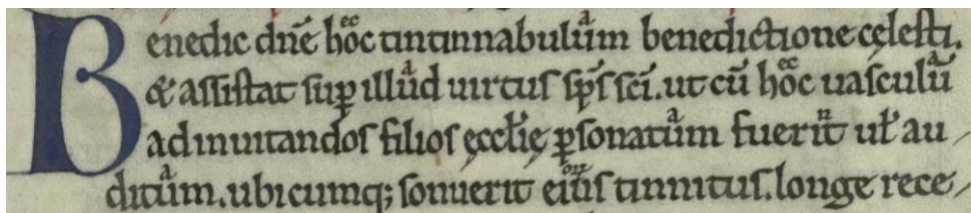 Benedic dnē hoc̄ᵉᶜ tintinnabulūᵃm benedictione cęlesti.
& assistat sup̱ illūᵃd uirtus sp̄s sc̄i. ut cū hocᵉᶜ uasculūᵃ
ad inuitandos filios ęccłię ꝑsonatūᵃm fuerītⁿ uł au
ditūᵃm. ubicumq; sonuerit eiūsᵒʳᵘ tinnitus. longe rece